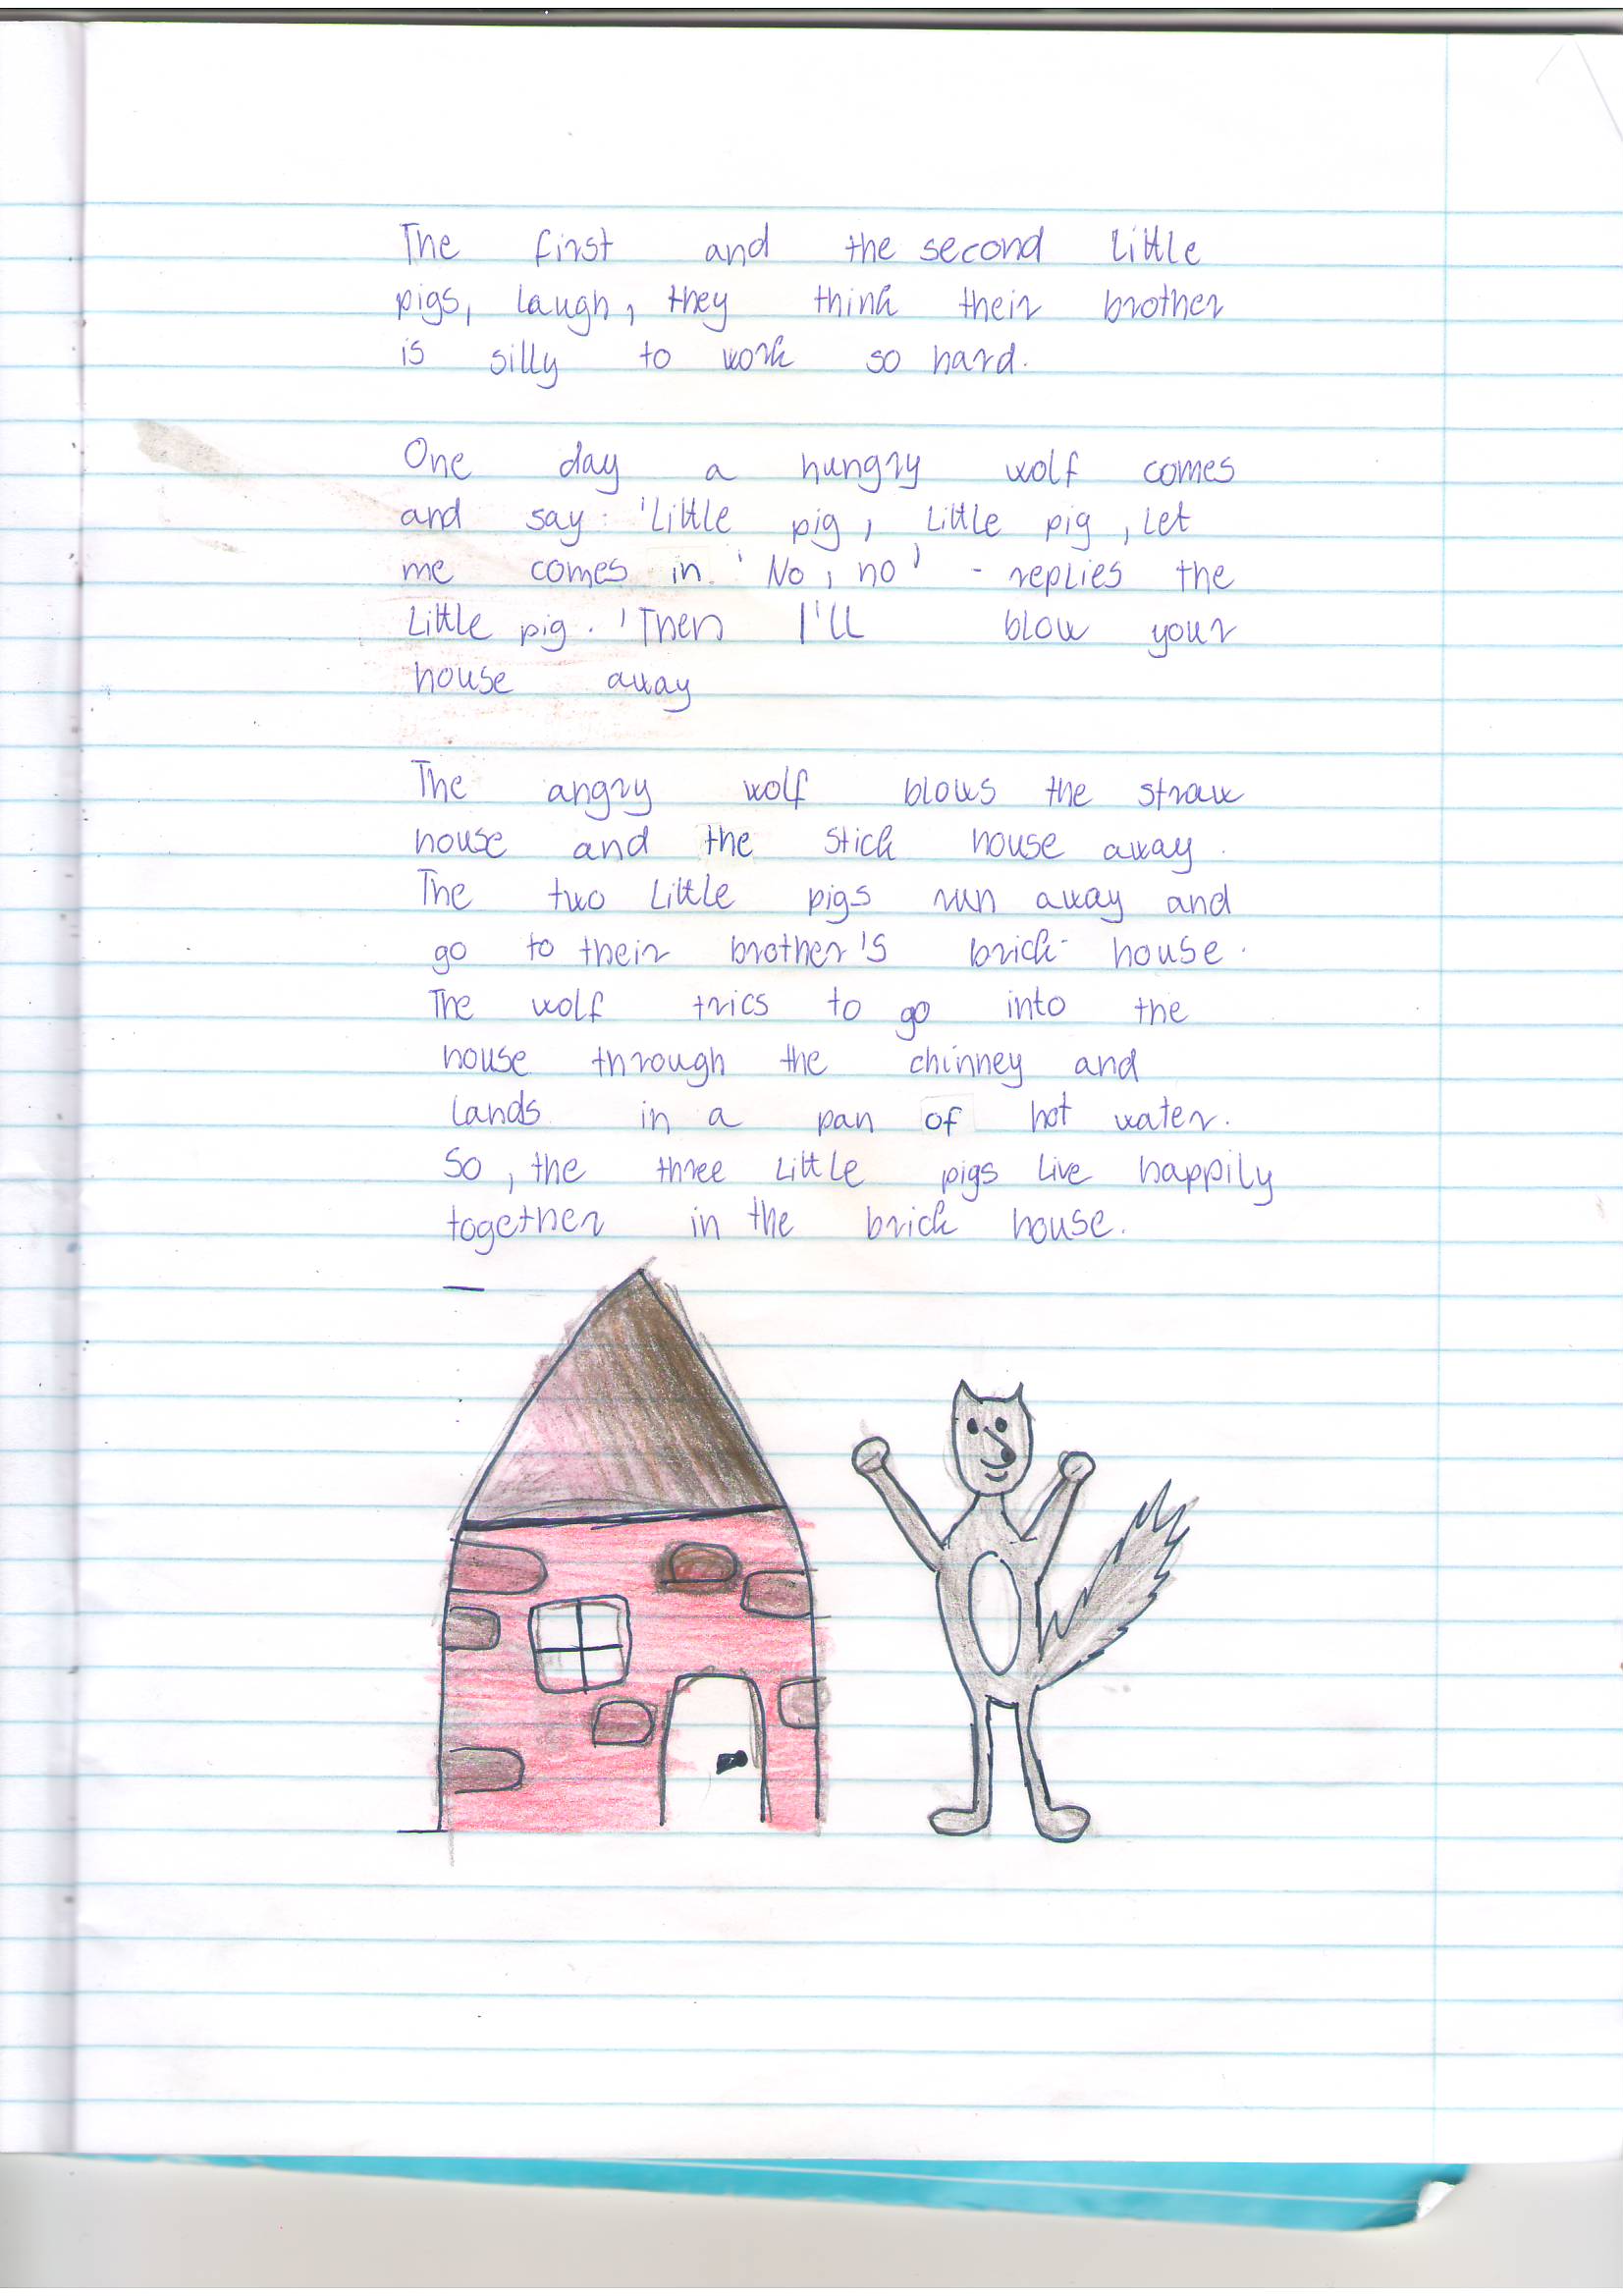 The first and the second little
pigs, laugh, they think their brother
is silly to work so hard.
One day a hungry wolf comes
and say: 'Little pig, little pig, let
me comes in. 'No, no' - replies the
little pig. 'Then I'll blow your
house away
The angry wolf blows the straw
house and the stick house away.
The two little pigs run away and
go to their brother's brick house.
The wolf tries to go into the
house through the chinney and
lands in a pan of hot water.
So, the three little pigs live happily
together in the brick house.